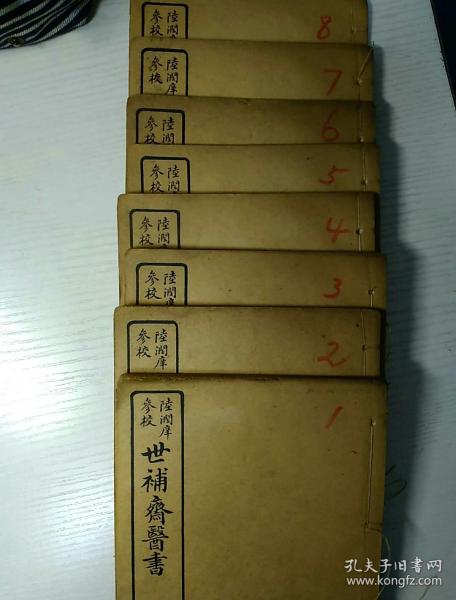 8
陸潤庠
參校
7
陸潤庠
參校
6
陸潤
參校
5
陸潤
參校
4
陸潤
參校
3
陸潤庠
參校
2
陸潤庠
參校
1
陸潤庠
參校
世補齋醫書
孔夫子旧书网
www.kongfz.com